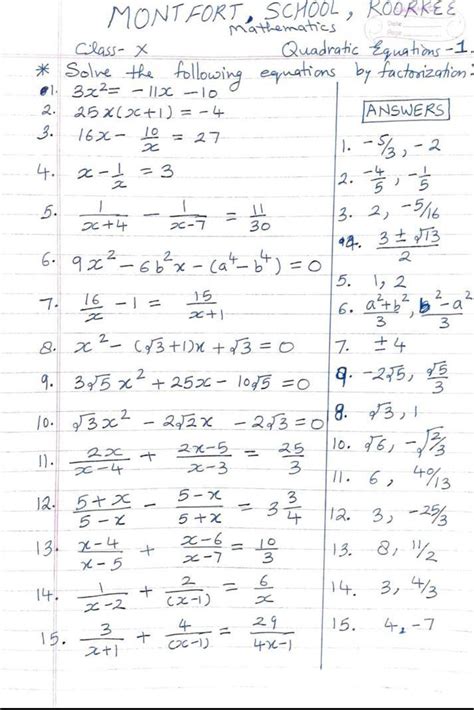 MONTFORT, SCHOOL, ROORKEE
Mathematics
Class- X Quadratic Equations -1.
* Solve the following equations by factorization:
1. 3x² = -11x - 10
2. 25x(x+1) = -4
3. 16x - 10/x = 27
4. x - 1/x = 3
5. 1/(x+4) - 1/(x-7) = 11/30
6. 9x² - 6b²x - (a⁴ - b⁴) = 0
7. 16/x - 1 = 15/(x+1)
8. x² - (√3+1)x + √3 = 0
9. 3√5 x² + 25x - 10√5 = 0
10. √3x² - 2√2x - 2√3 = 0
11. 2x/(x-4) + (2x-5)/(x-3) = 25/3
12. (5+x)/(5-x) - (5-x)/(5+x) = 3 3/4
13. (x-4)/(x-5) + (x-6)/(x-7) = 10/3
14. 1/(x-2) + 2/(x-1) = 6/x
15. 3/(x+1) + 4/(x-1) = 29/(4x-1)
ANSWERS
1. -5/3, -2
2. -4/5, -1/5
3. 2, -5/16
4. (3 ± √13)/2
5. 1, 2
6. (a²+b²)/3, (b²-a²)/3
7. ±4
9. -2√5, √5/3
8. √3, 1
10. √6, -√(2/3)
11. 6, 40/13
12. 3, -25/3
13. 8, 11/2
14. 3, 4/3
15. 4, -7